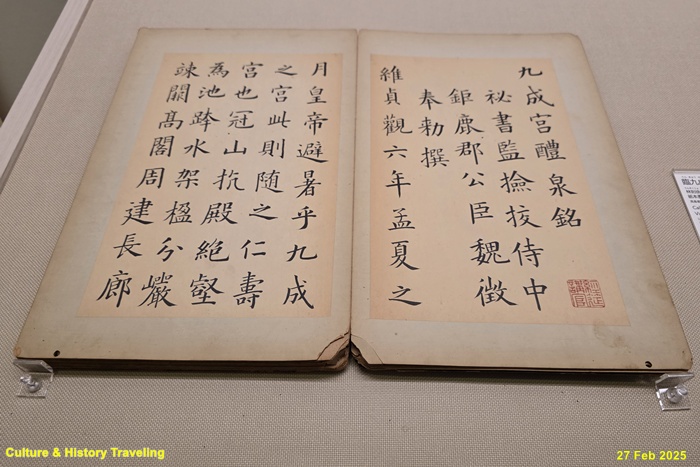 九成宮醴泉銘
祕書監撿挍侍中
鉅鹿郡公臣魏徵
奉勑撰
維貞觀六年孟夏之
月皇帝避暑乎九成
之宮此則随之仁壽
宮也冠山抗殿絕壑
為池跨水架楹分巖
竦闕髙閣周建長廊
Culture & History Traveling
27 Feb 2025